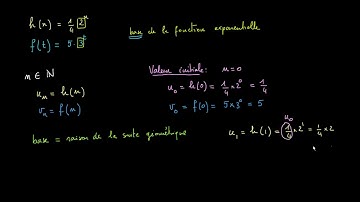 h(x) = 1/4 2^x
base de la fonction exponentielle
f(t) = 5·3^t
n ∈ ℕ
Valeur initiale : n = 0
u_n = h(n)
u_0 = h(0) = 1/4 × 2^0 = 1/4
v_n = f(n)
v_0 = f(0) = 5×3^0 = 5
u_0
base = raison de la suite géométrique
u_1 = h(1) = 1/4 × 2^1 = 1/4 × 2